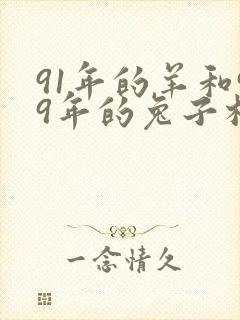 91年的羊和9
9年的兔子相
一念情久